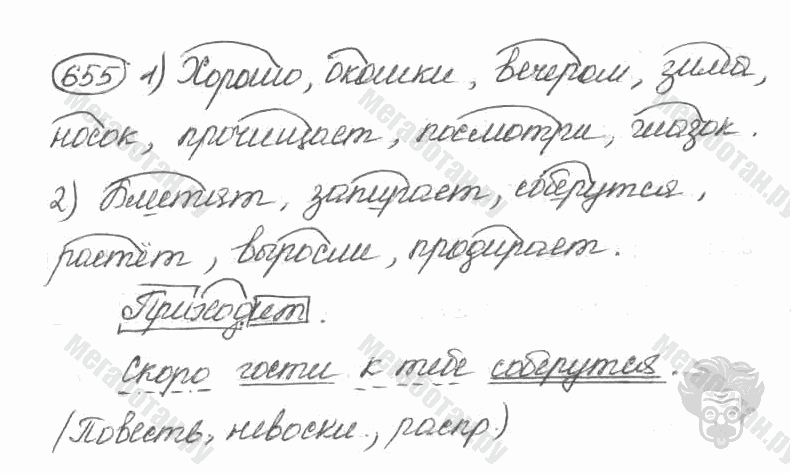 655 1) Хорошо, окошки, вечером, зима,
носок, прочищает, посмотри, глазок.
2) Блестят, запирает, соберутся,
растёт, выросли, продирает.
Приходит.
Скоро гости к тебе соберутся.
(Повеств., невоскл., распр.)
мегаботан.ру